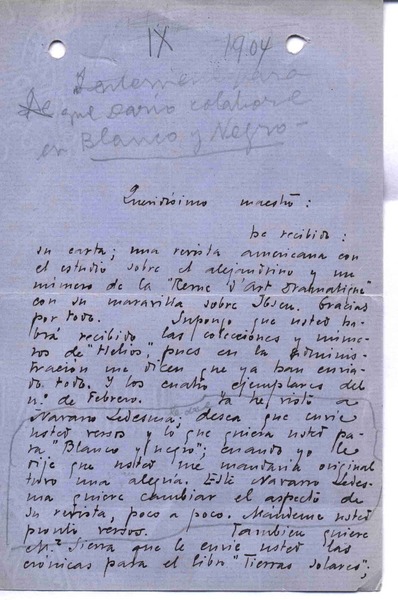 IX 1904
Interviene para
que Darío colabore
en Blanco y Negro-
Queridísimo maestro:
he recibido:
su carta; una revista americana con
el estudio sobre el alejandrino y un
número de la "Revue d'Art Dramatique"
con su maravilla sobre Ibsen. Gracias
por todo. Supongo que usted ha-
brá recibido las colecciones y núme-
ros de "Helios", pues en la Adminis-
tración me dicen que ya han envia-
do todo. Y los cuatro ejemplares del
n.º de Febrero. Ya he visto a
Navarro Ledesma; desea que envíe
usted versos y lo que quiera usted pa-
ra "Blanco y negro"; cuando yo le
dije que usted me mandaría original
tuvo una alegría. Este Navarro Ledes-
ma quiere cambiar el aspecto de
su revista, poco a poco. Mándeme usted
pronto versos. También quiere
M.ª Sierra que le envíe usted las
crónicas para el libro "Tierras solares";